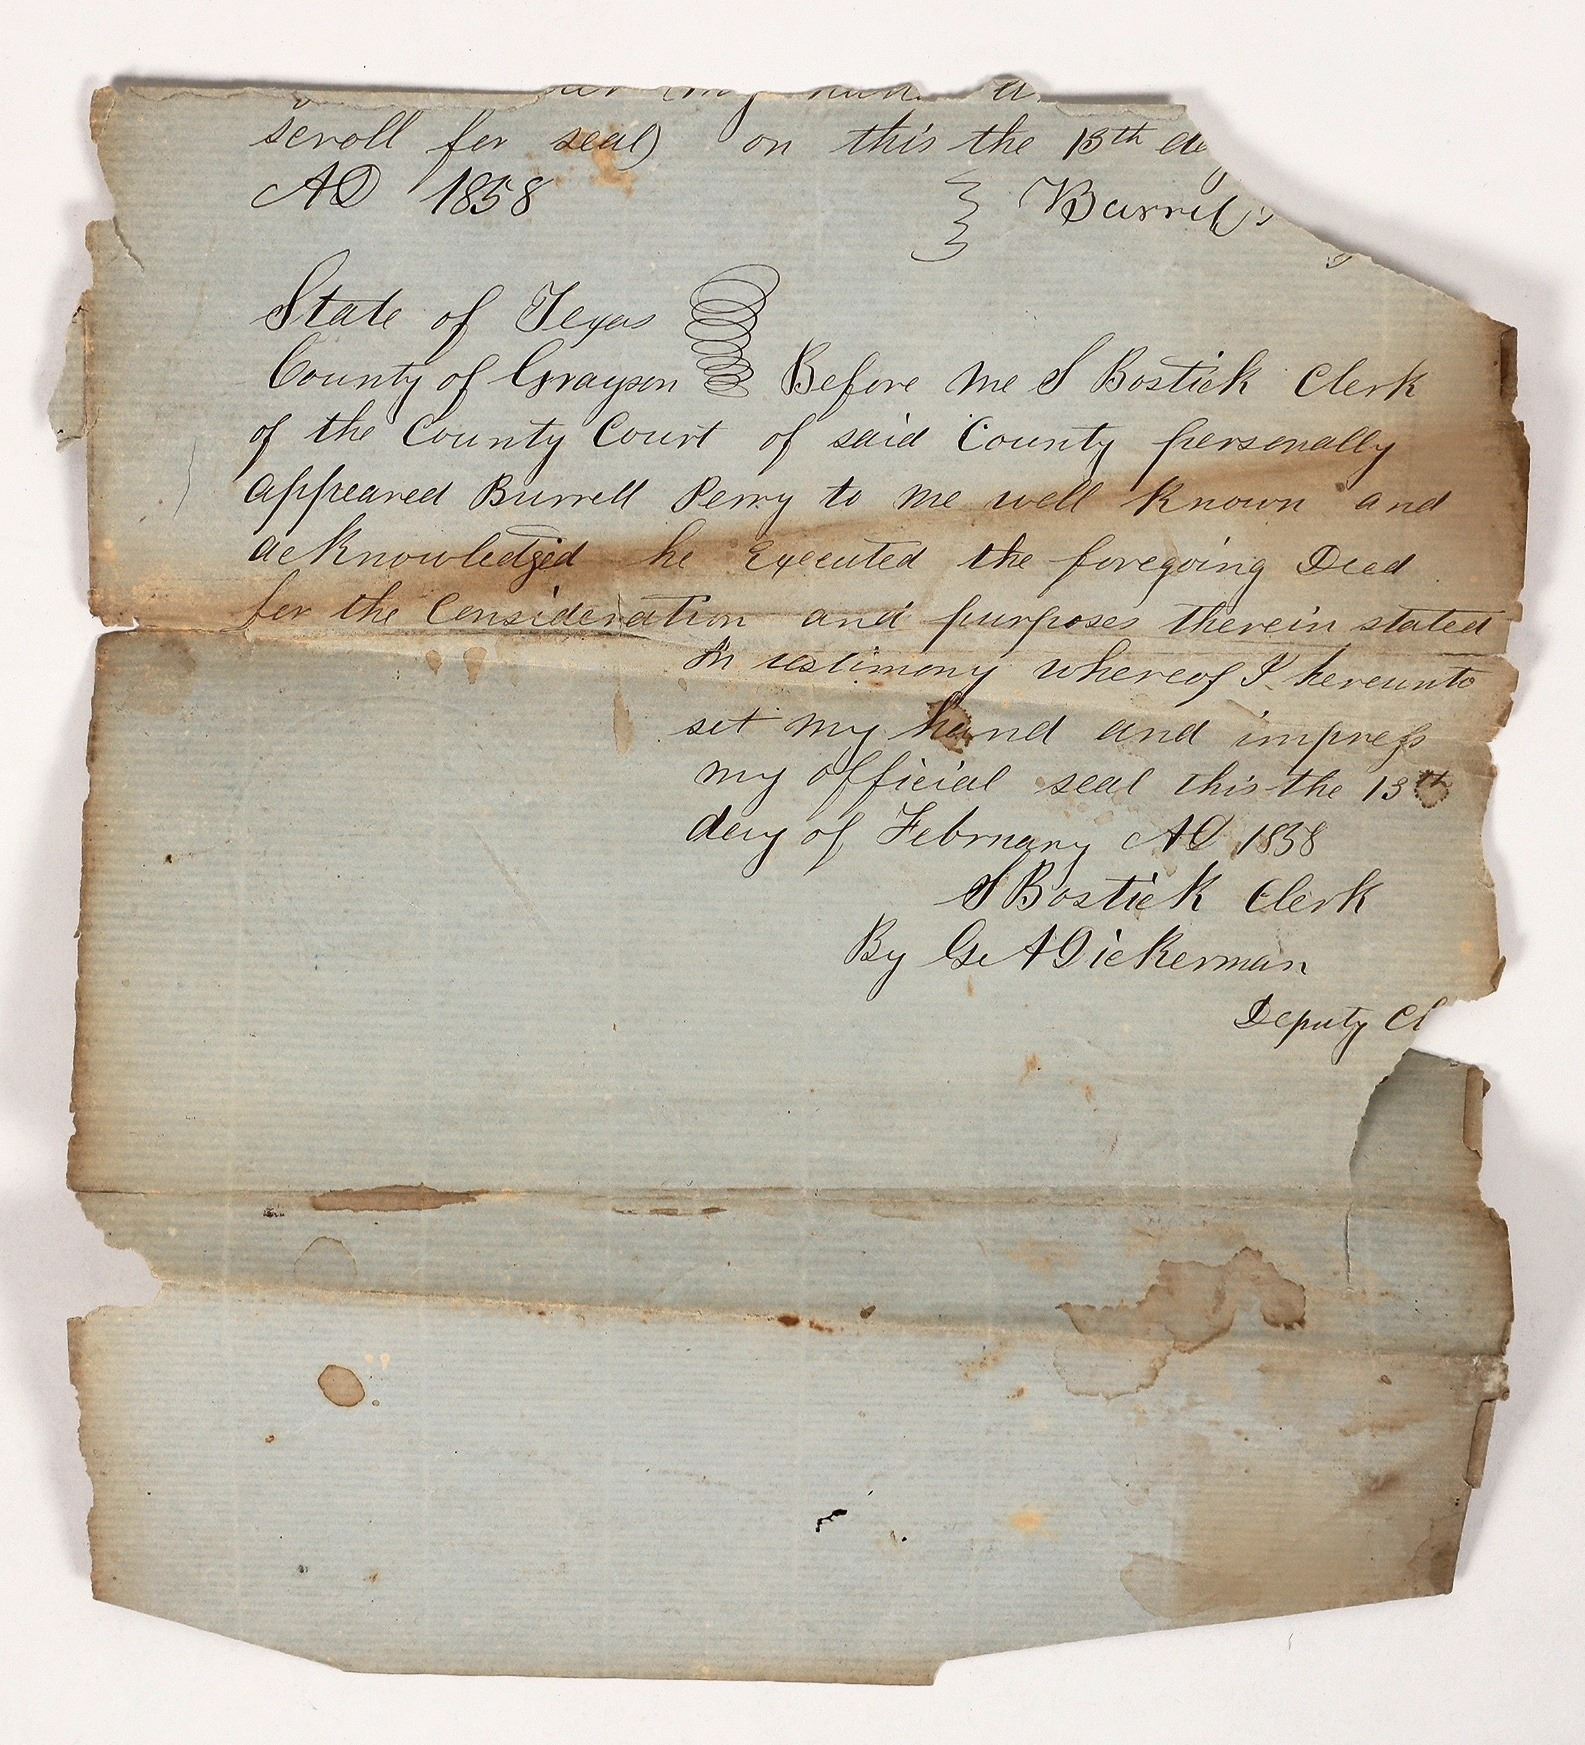 my
scroll for seal) on this the 13th da
AD 1858 Burrel
State of Texas
County of Grayson Before me S Bostick Clerk
of the County Court of said County personally
appeared Burrell Perry to me well known and
acknowledged he Executed the foregoing Deed
for the Consideration and purposes therein stated
In testimony whereof I hereunto
set my hand and impress
my official seal this the 13th
day of February AD 1858
S Bostick Clerk
By G A Dickerman
Deputy Cl